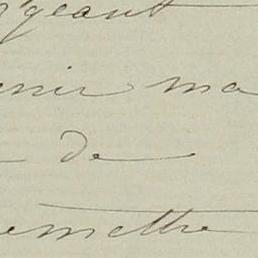 rgeant
enir ma
de
emettre